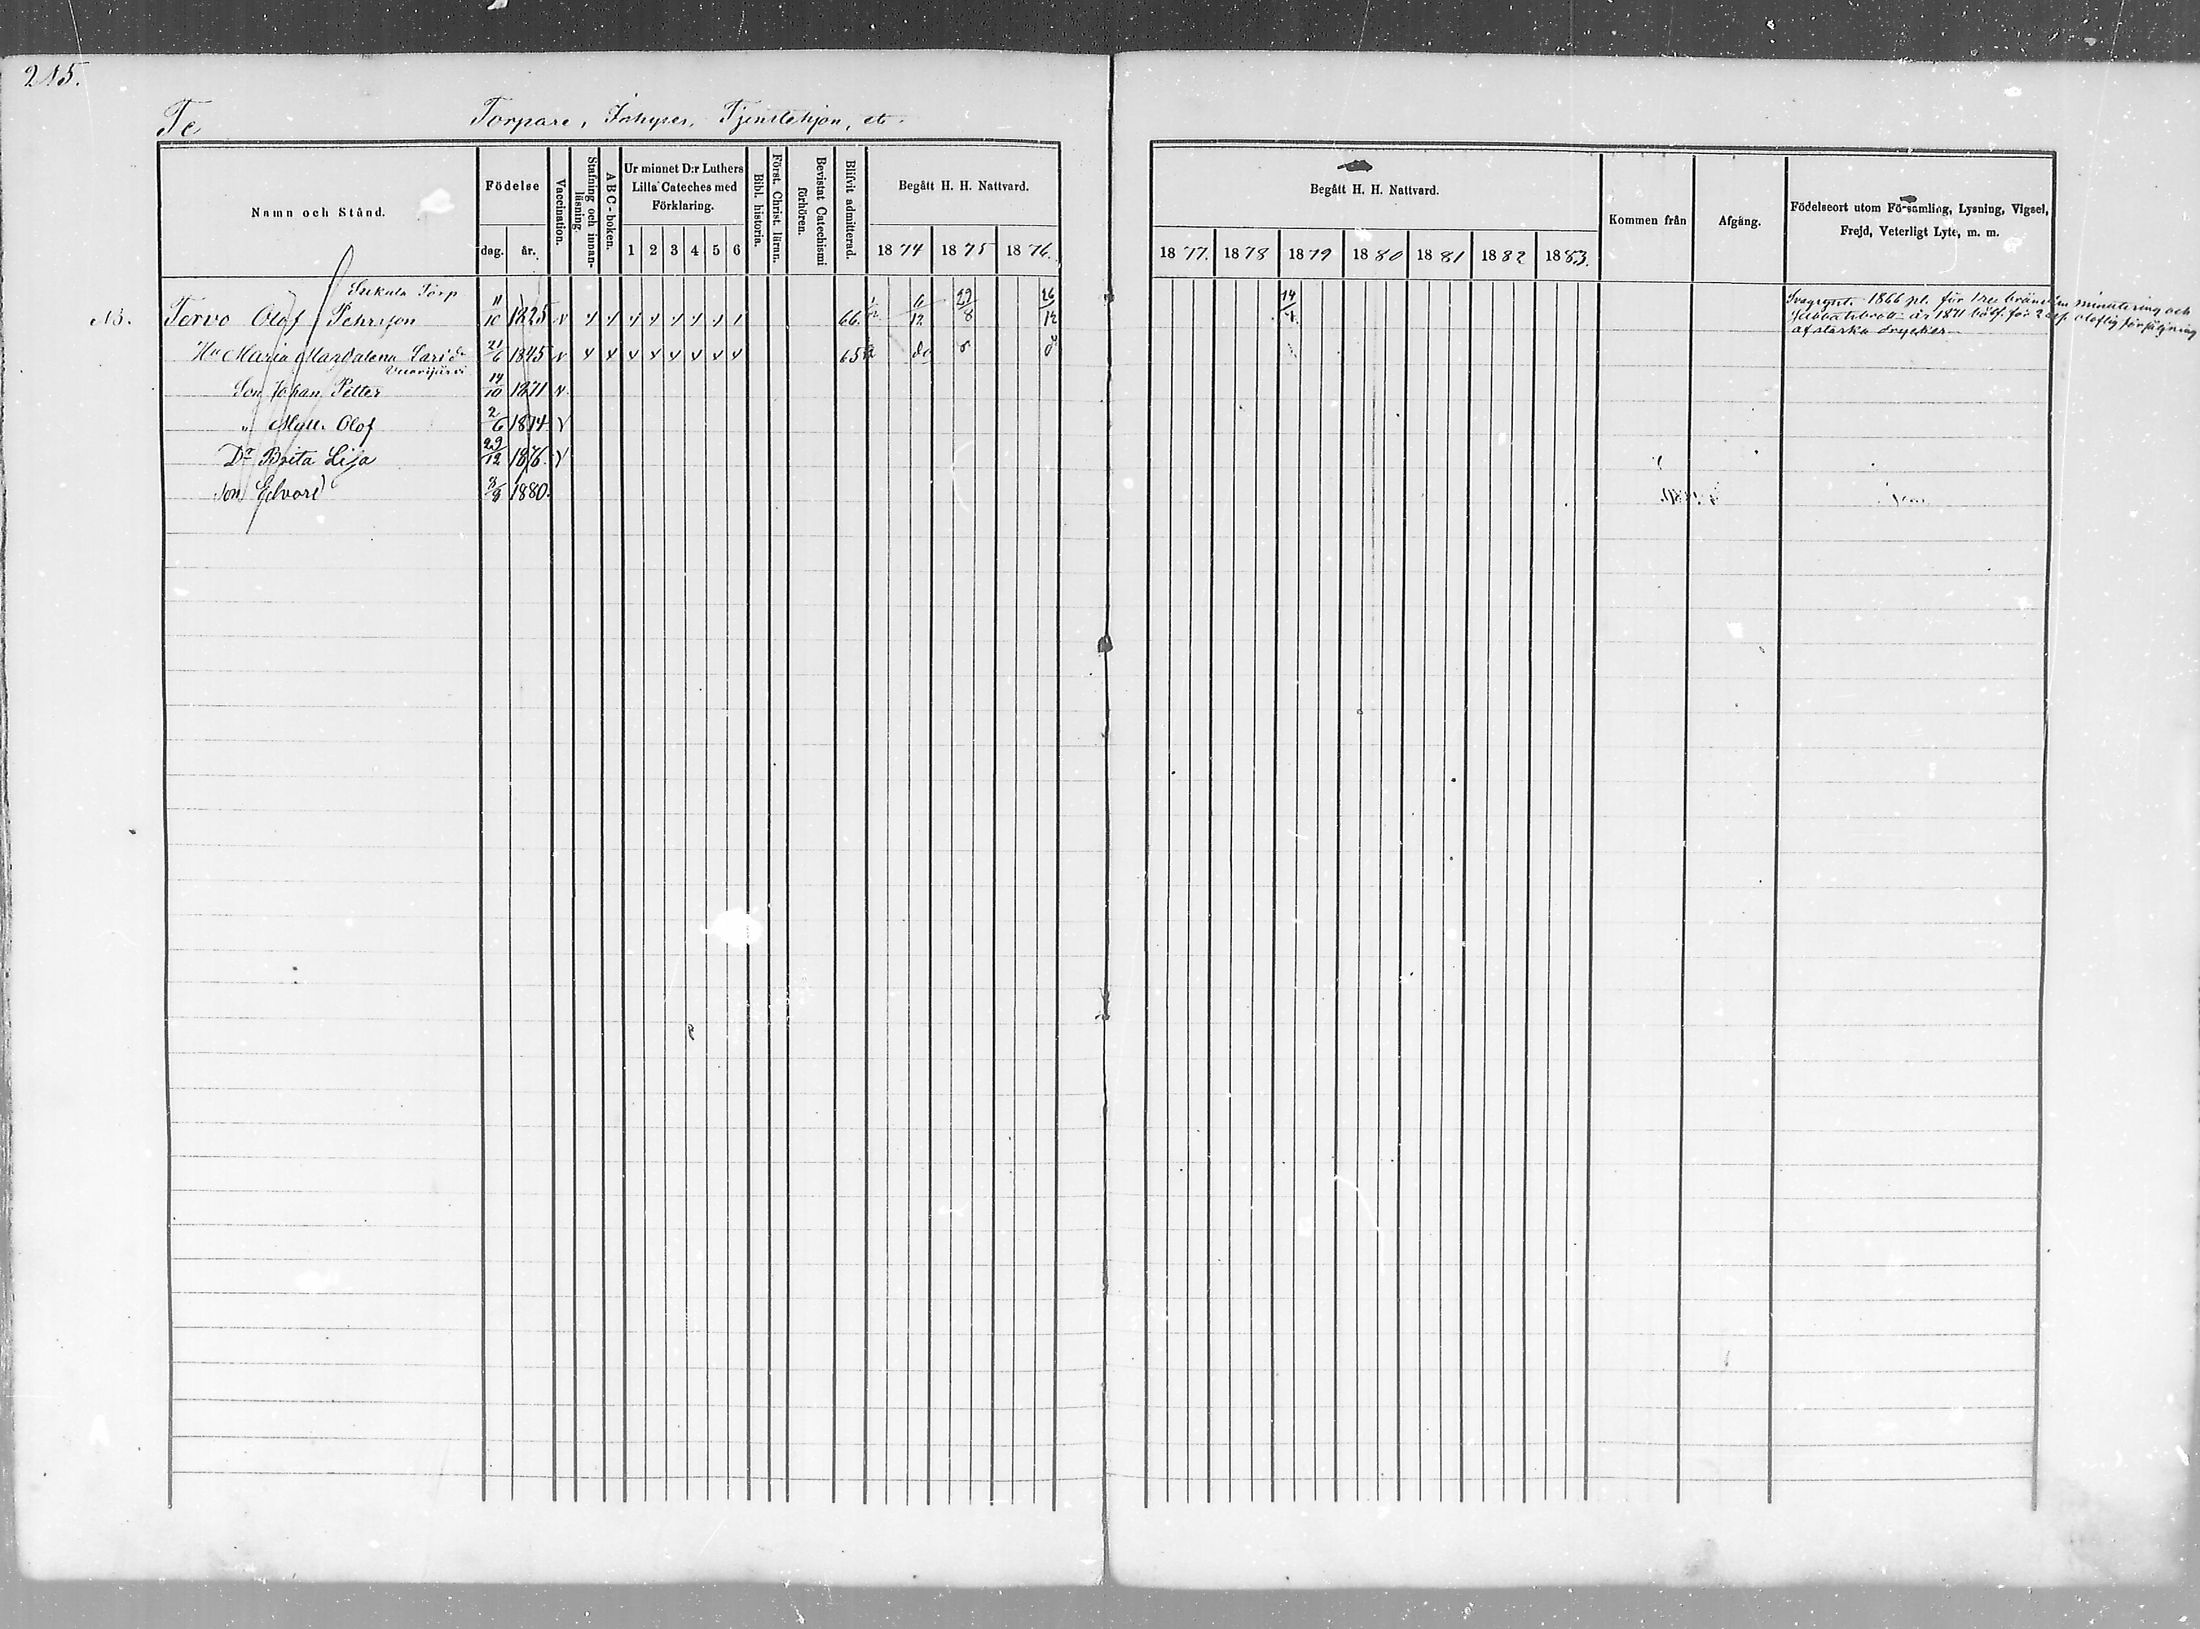 215.
Te
Torpare, Inhyses, Tjenstehjon, etc.
Namn och Stånd.
Födelse
dag.
år.
Vaccination.
Stafning och innanläsning.
ABC-boken.
Ur minnet D:r Luthers Lilla Cateches med Förklaring.
1 2 3 4 5 6
Bibl. historia.
Först. Christ. läran.
Bevistat Catechismi förhören.
Blifvit admitterad.
Begått H. H. Nattvard.
1874 1875 1876.
Begått H. H. Nattvard.
1877. 1878 1879 1880 1881 1882 1883.
Kommen från
Afgång.
Födelseort utom Församling, Lysning, Vigsel,
Frejd, Veterligt Lyte, m. m.
Torp
Tervo Olof Pehrsson 11/10 1825 66. 6/12 29/8 26/12 14/4
1866 pl. för bränvin minutering och
Sabbatsbrott år 1871 böt. för 2 olaflig försäljning
af starka drycker
Hu Maria Magdalena Larsdr 21/6 1845 65 do
Son Johan Petter 14/10 1871
" Matts Olof 2/6 1874
Dr Brita Lisa 29/12 1876.
Son Edvard 1880.